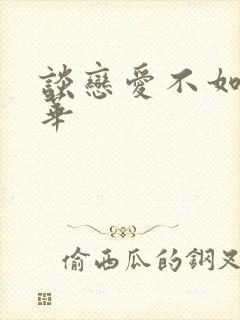 談戀愛不如
華
偷西瓜的鋼叉